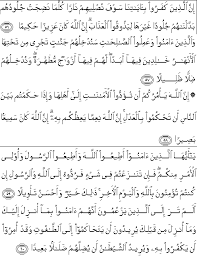 إِنَّ ٱلَّذِينَ كَفَرُوا۟ بِـَٔايَـٰتِنَا سَوْفَ نُصْلِيهِمْ نَارًا كُلَّمَا نَضِجَتْ جُلُودُهُم
بَدَّلْنَـٰهُمْ جُلُودًا غَيْرَهَا لِيَذُوقُوا۟ ٱلْعَذَابَ إِنَّ ٱللَّهَ كَانَ عَزِيزًا حَكِيمًا ٥٦
وَٱلَّذِينَ ءَامَنُوا۟ وَعَمِلُوا۟ ٱلصَّـٰلِحَـٰتِ سَنُدْخِلُهُمْ جَنَّـٰتٍ تَجْرِى مِن تَحْتِهَا
ٱلْأَنْهَـٰرُ خَـٰلِدِينَ فِيهَآ أَبَدًا لَّهُمْ فِيهَآ أَزْوَٰجٌ مُّطَهَّرَةٌ وَنُدْخِلُهُمْ
ظِلًّا ظَلِيلًا ٥٧
۞ إِنَّ ٱللَّهَ يَأْمُرُكُمْ أَن تُؤَدُّوا۟ ٱلْأَمَـٰنَـٰتِ إِلَىٰٓ أَهْلِهَا وَإِذَا حَكَمْتُم بَيْنَ
ٱلنَّاسِ أَن تَحْكُمُوا۟ بِٱلْعَدْلِ إِنَّ ٱللَّهَ نِعِمَّا يَعِظُكُم بِهِۦٓ إِنَّ ٱللَّهَ كَانَ سَمِيعًۢا
بَصِيرًا ٥٨
يَـٰٓأَيُّهَا ٱلَّذِينَ ءَامَنُوٓا۟ أَطِيعُوا۟ ٱللَّهَ وَأَطِيعُوا۟ ٱلرَّسُولَ وَأُو۟لِى
ٱلْأَمْرِ مِنكُمْ فَإِن تَنَـٰزَعْتُمْ فِى شَىْءٍ فَرُدُّوهُ إِلَى ٱللَّهِ وَٱلرَّسُولِ إِن
كُنتُمْ تُؤْمِنُونَ بِٱللَّهِ وَٱلْيَوْمِ ٱلْـَٔاخِرِ ذَٰلِكَ خَيْرٌ وَأَحْسَنُ تَأْوِيلًا ٥٩
أَلَمْ تَرَ إِلَى ٱلَّذِينَ يَزْعُمُونَ أَنَّهُمْ ءَامَنُوا۟ بِمَآ أُنزِلَ إِلَيْكَ
وَمَآ أُنزِلَ مِن قَبْلِكَ يُرِيدُونَ أَن يَتَحَاكَمُوٓا۟ إِلَى ٱلطَّـٰغُوتِ وَقَدْ أُمِرُوٓا۟
أَن يَكْفُرُوا۟ بِهِۦ وَيُرِيدُ ٱلشَّيْطَـٰنُ أَن يُضِلَّهُمْ ضَلَـٰلًۢا بَعِيدًا ٦٠